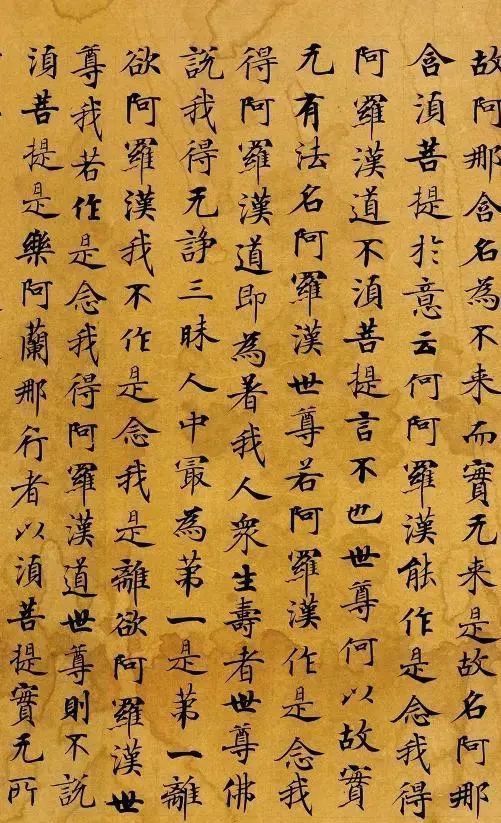 故阿那含名為不来而實无来是故名阿那
含湏菩提扵意云何阿羅漢能作是念我得
阿羅漢道不湏菩提言不也世尊何以故實
无有法名阿羅漢世尊若阿羅漢作是念我
得阿羅漢道即為著我人衆生壽者世尊佛
說我得无諍三昧人中冣為第一是第一離
欲阿羅漢我不作是念我是離欲阿羅漢世
尊我若作是念我得阿羅漢道世尊則不說
湏菩提是樂阿蘭那行者以湏菩提實无所